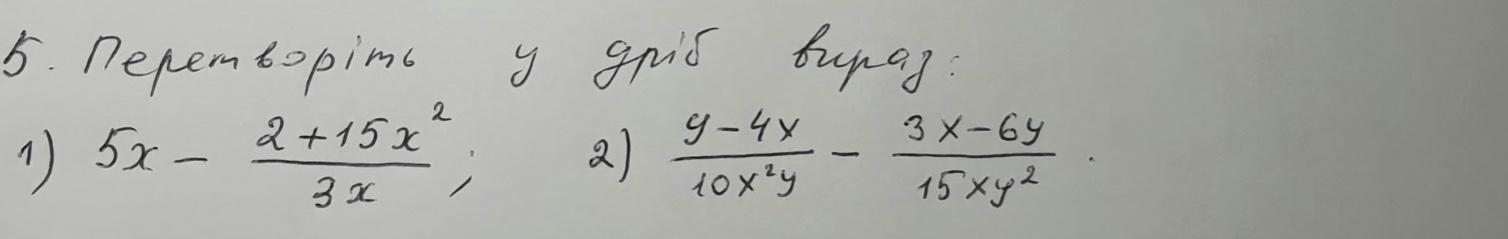 5. Перетворіть у дріб вираз:
1) 5x - \frac{2+15x^2}{3x}; 2) \frac{y-4x}{10x^2y} - \frac{3x-6y}{15xy^2}.